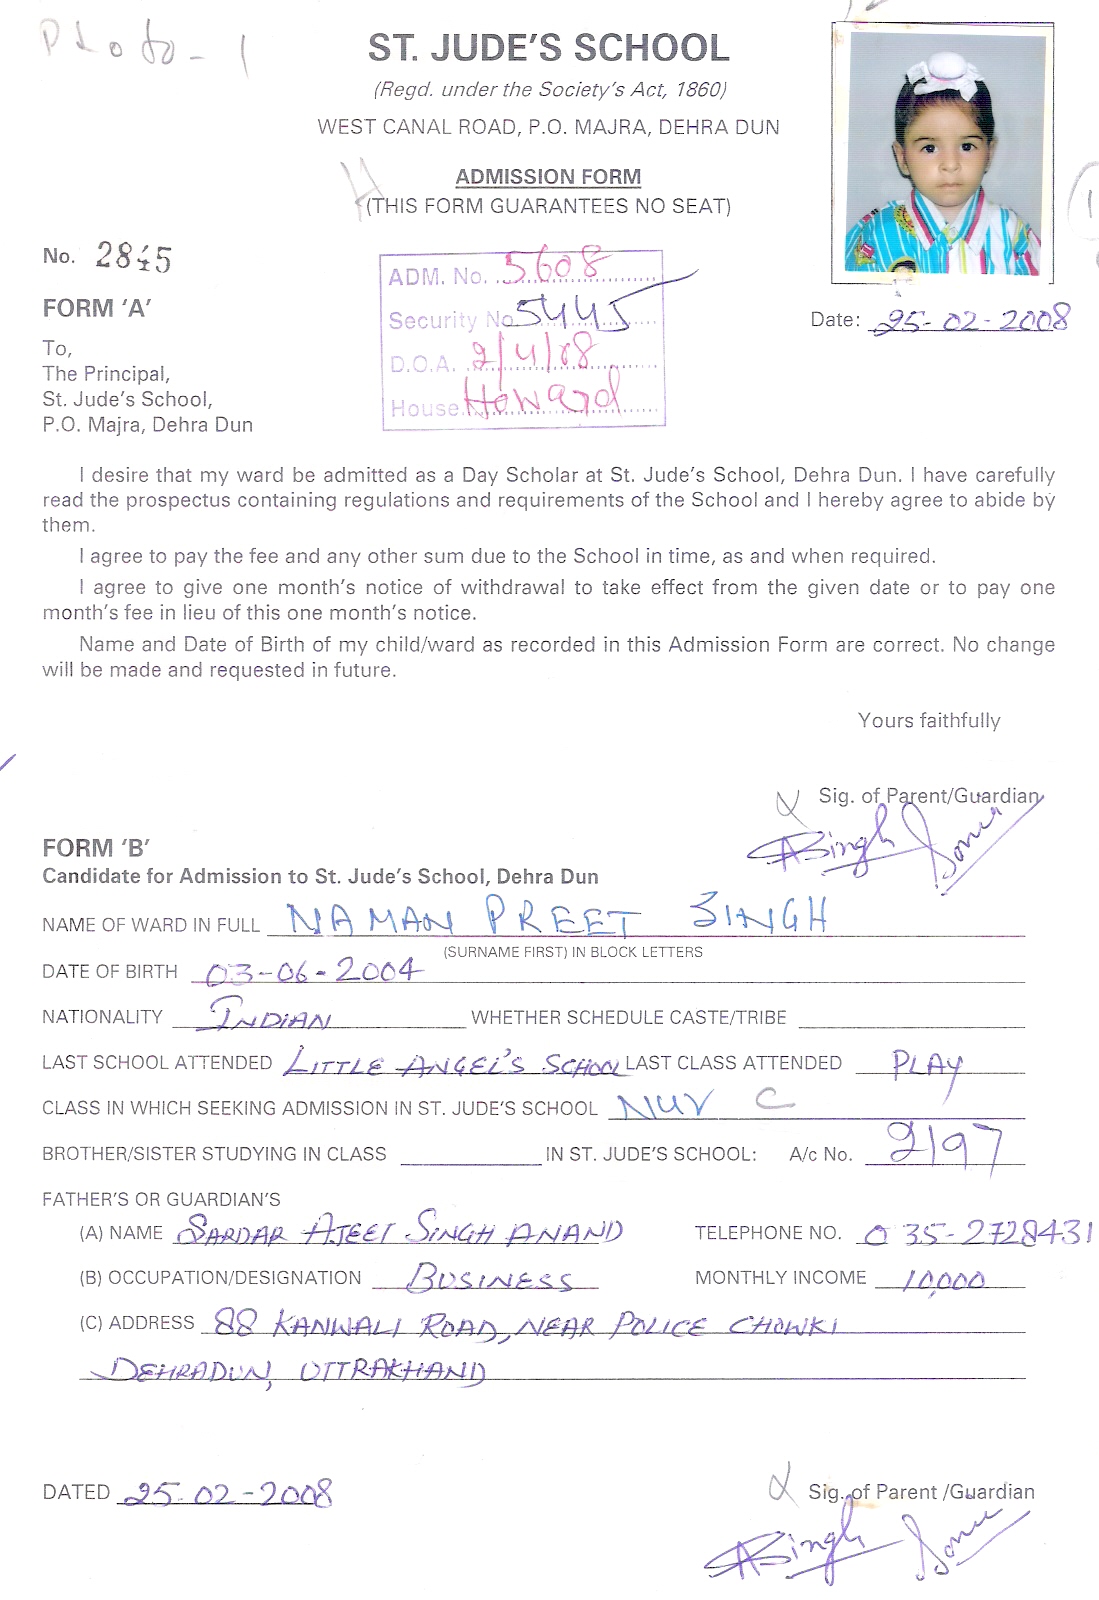 Photo - 1
ST. JUDE'S SCHOOL
(Regd. under the Society's Act, 1860)
WEST CANAL ROAD, P.O. MAJRA, DEHRA DUN
ADMISSION FORM
(THIS FORM GUARANTEES NO SEAT)
No. 2845
ADM. No. 5608
Security No 5445
D.O.A. 2/4/08
House Howard
FORM 'A'
Date: 25-02-2008
To,
The Principal,
St. Jude's School,
P.O. Majra, Dehra Dun
I desire that my ward be admitted as a Day Scholar at St. Jude's School, Dehra Dun. I have carefully
read the prospectus containing regulations and requirements of the School and I hereby agree to abide by
them.
I agree to pay the fee and any other sum due to the School in time, as and when required.
I agree to give one month's notice of withdrawal to take effect from the given date or to pay one
month's fee in lieu of this one month's notice.
Name and Date of Birth of my child/ward as recorded in this Admission Form are correct. No change
will be made and requested in future.
Yours faithfully
Sig. of Parent/Guardian
ASingh
FORM 'B'
Candidate for Admission to St. Jude's School, Dehra Dun
NAME OF WARD IN FULL NAMAN PREET SINGH
(SURNAME FIRST) IN BLOCK LETTERS
DATE OF BIRTH 03-06-2004
NATIONALITY INDIAN WHETHER SCHEDULE CASTE/TRIBE
LAST SCHOOL ATTENDED LITTLE ANGEL'S SCHOOL LAST CLASS ATTENDED PLAY
CLASS IN WHICH SEEKING ADMISSION IN ST. JUDE'S SCHOOL NUR C
BROTHER/SISTER STUDYING IN CLASS IN ST. JUDE'S SCHOOL: A/c No. 2197
FATHER'S OR GUARDIAN'S
(A) NAME SARDAR AJEET SINGH ANAND TELEPHONE NO. 0 35-2728431
(B) OCCUPATION/DESIGNATION BUSINESS MONTHLY INCOME 10,000
(C) ADDRESS 88 KANWALI ROAD, NEAR POLICE CHOWKI
DEHRADUN, UTTRAKHAND
DATED 25-02-2008
Sig. of Parent /Guardian
ASingh